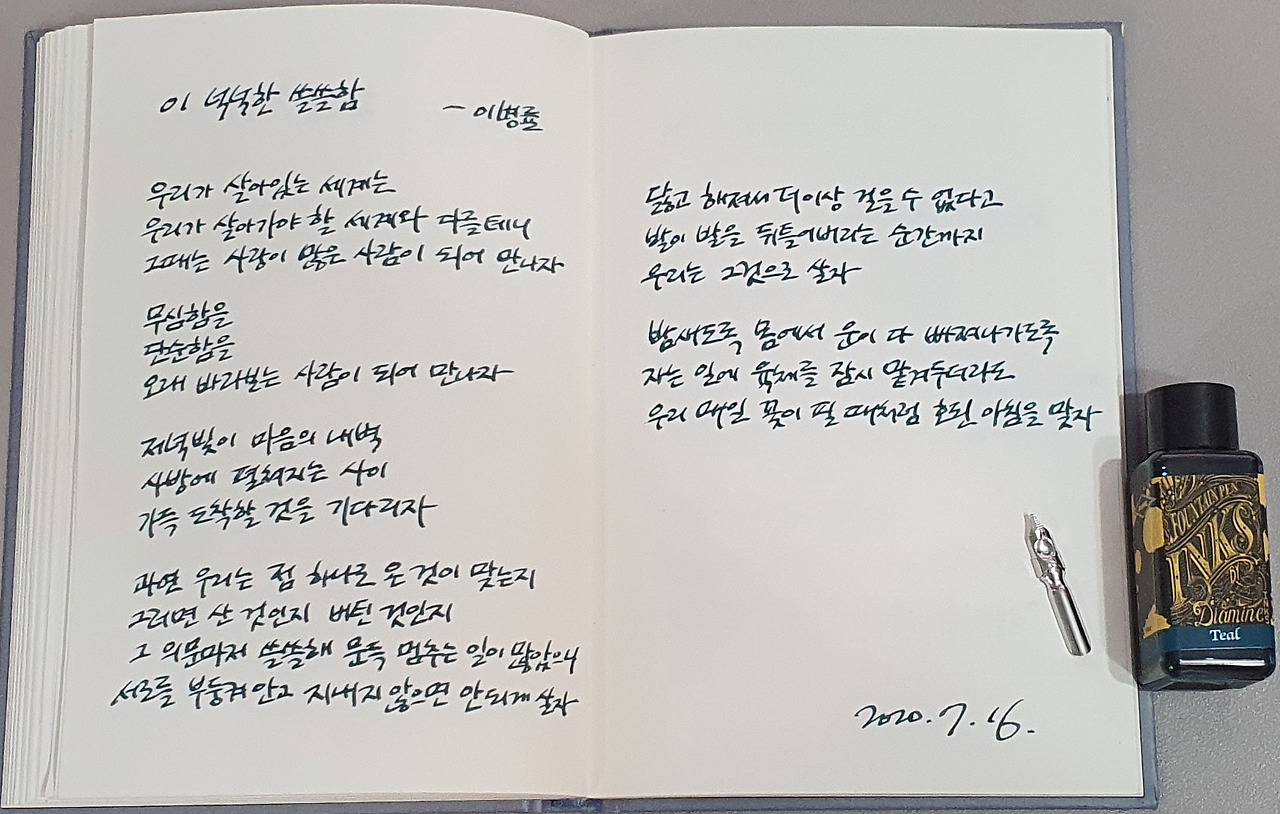 이 넉넉한 쓸쓸함
- 이병률
우리가 살아있는 세계는
우리가 살아가야 할 세계와 다를테니
그때는 사랑이 많은 사람이 되어 만나자
무심함을
단순함을
오래 바라보는 사람이 되어 만나자
저녁빛이 마음의 내벽
사방에 펼쳐지는 사이
가득 도착할 것을 기다리자
과연 우리는 점 하나로 온 것이 맞는지
그러면 산 것인지 버틴 것인지
그 의문마저 쓸쓸해 문득 멈추는 일이 많았으니
서로를 부둥켜안고 지내지 않으면 안되게 살자
닳고 해져서 더이상 걸을 수 없다고
발이 발을 뒤틀어버리는 순간까지
우리는 그것으로 살자
밤새도록 몸에서 운이 다 빠져나가도록
자는 일에 육체를 잠시 맡겨두더라도
우리 매일 꽃이 필 때처럼 호된 아침을 맞자
2020. 7. 16.
FOUNTAIN PEN
INKS
Diamine
Teal